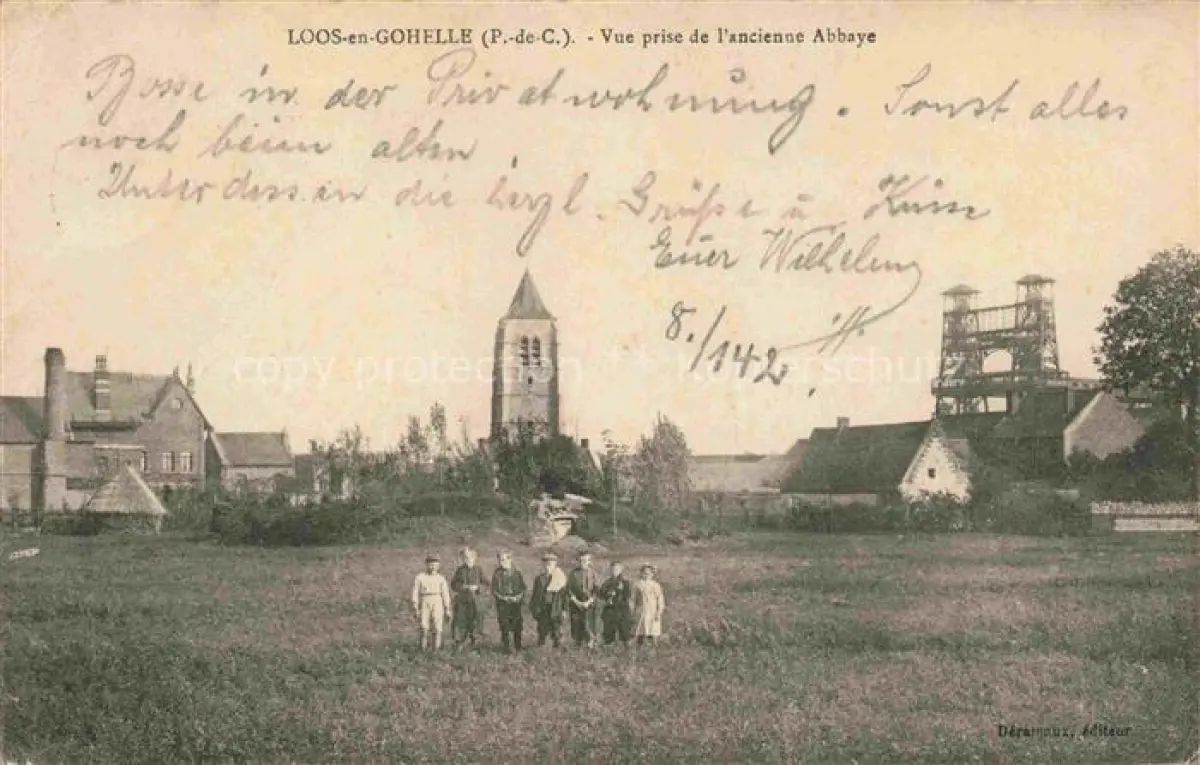 LOOS-en-GOHELLE (P.-de-C.). - Vue prise de l'ancienne Abbaye
in der Privatwohnung. Sonst alles
noch beim alten.
Unterdessen die herzl. Grüsse u
Euer Wilhelm
8./142
copy protection Kopierschutz
Déramaux, éditeur